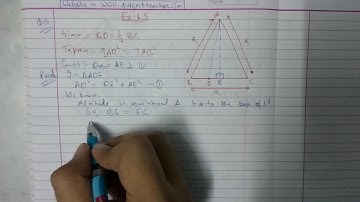 Website → www.subjectteacher.in
Ex-6.5
Q15
Given: BD = 1/3 BC
To prove: 9AD² = 7AB²
Const: Draw AE ⊥ BC
Proof: In ΔADE
AD² = DE² + AE² - ①
We know,
Altitude in equilateral Δ bisects the base of
So, BE = EC
A
B D E C